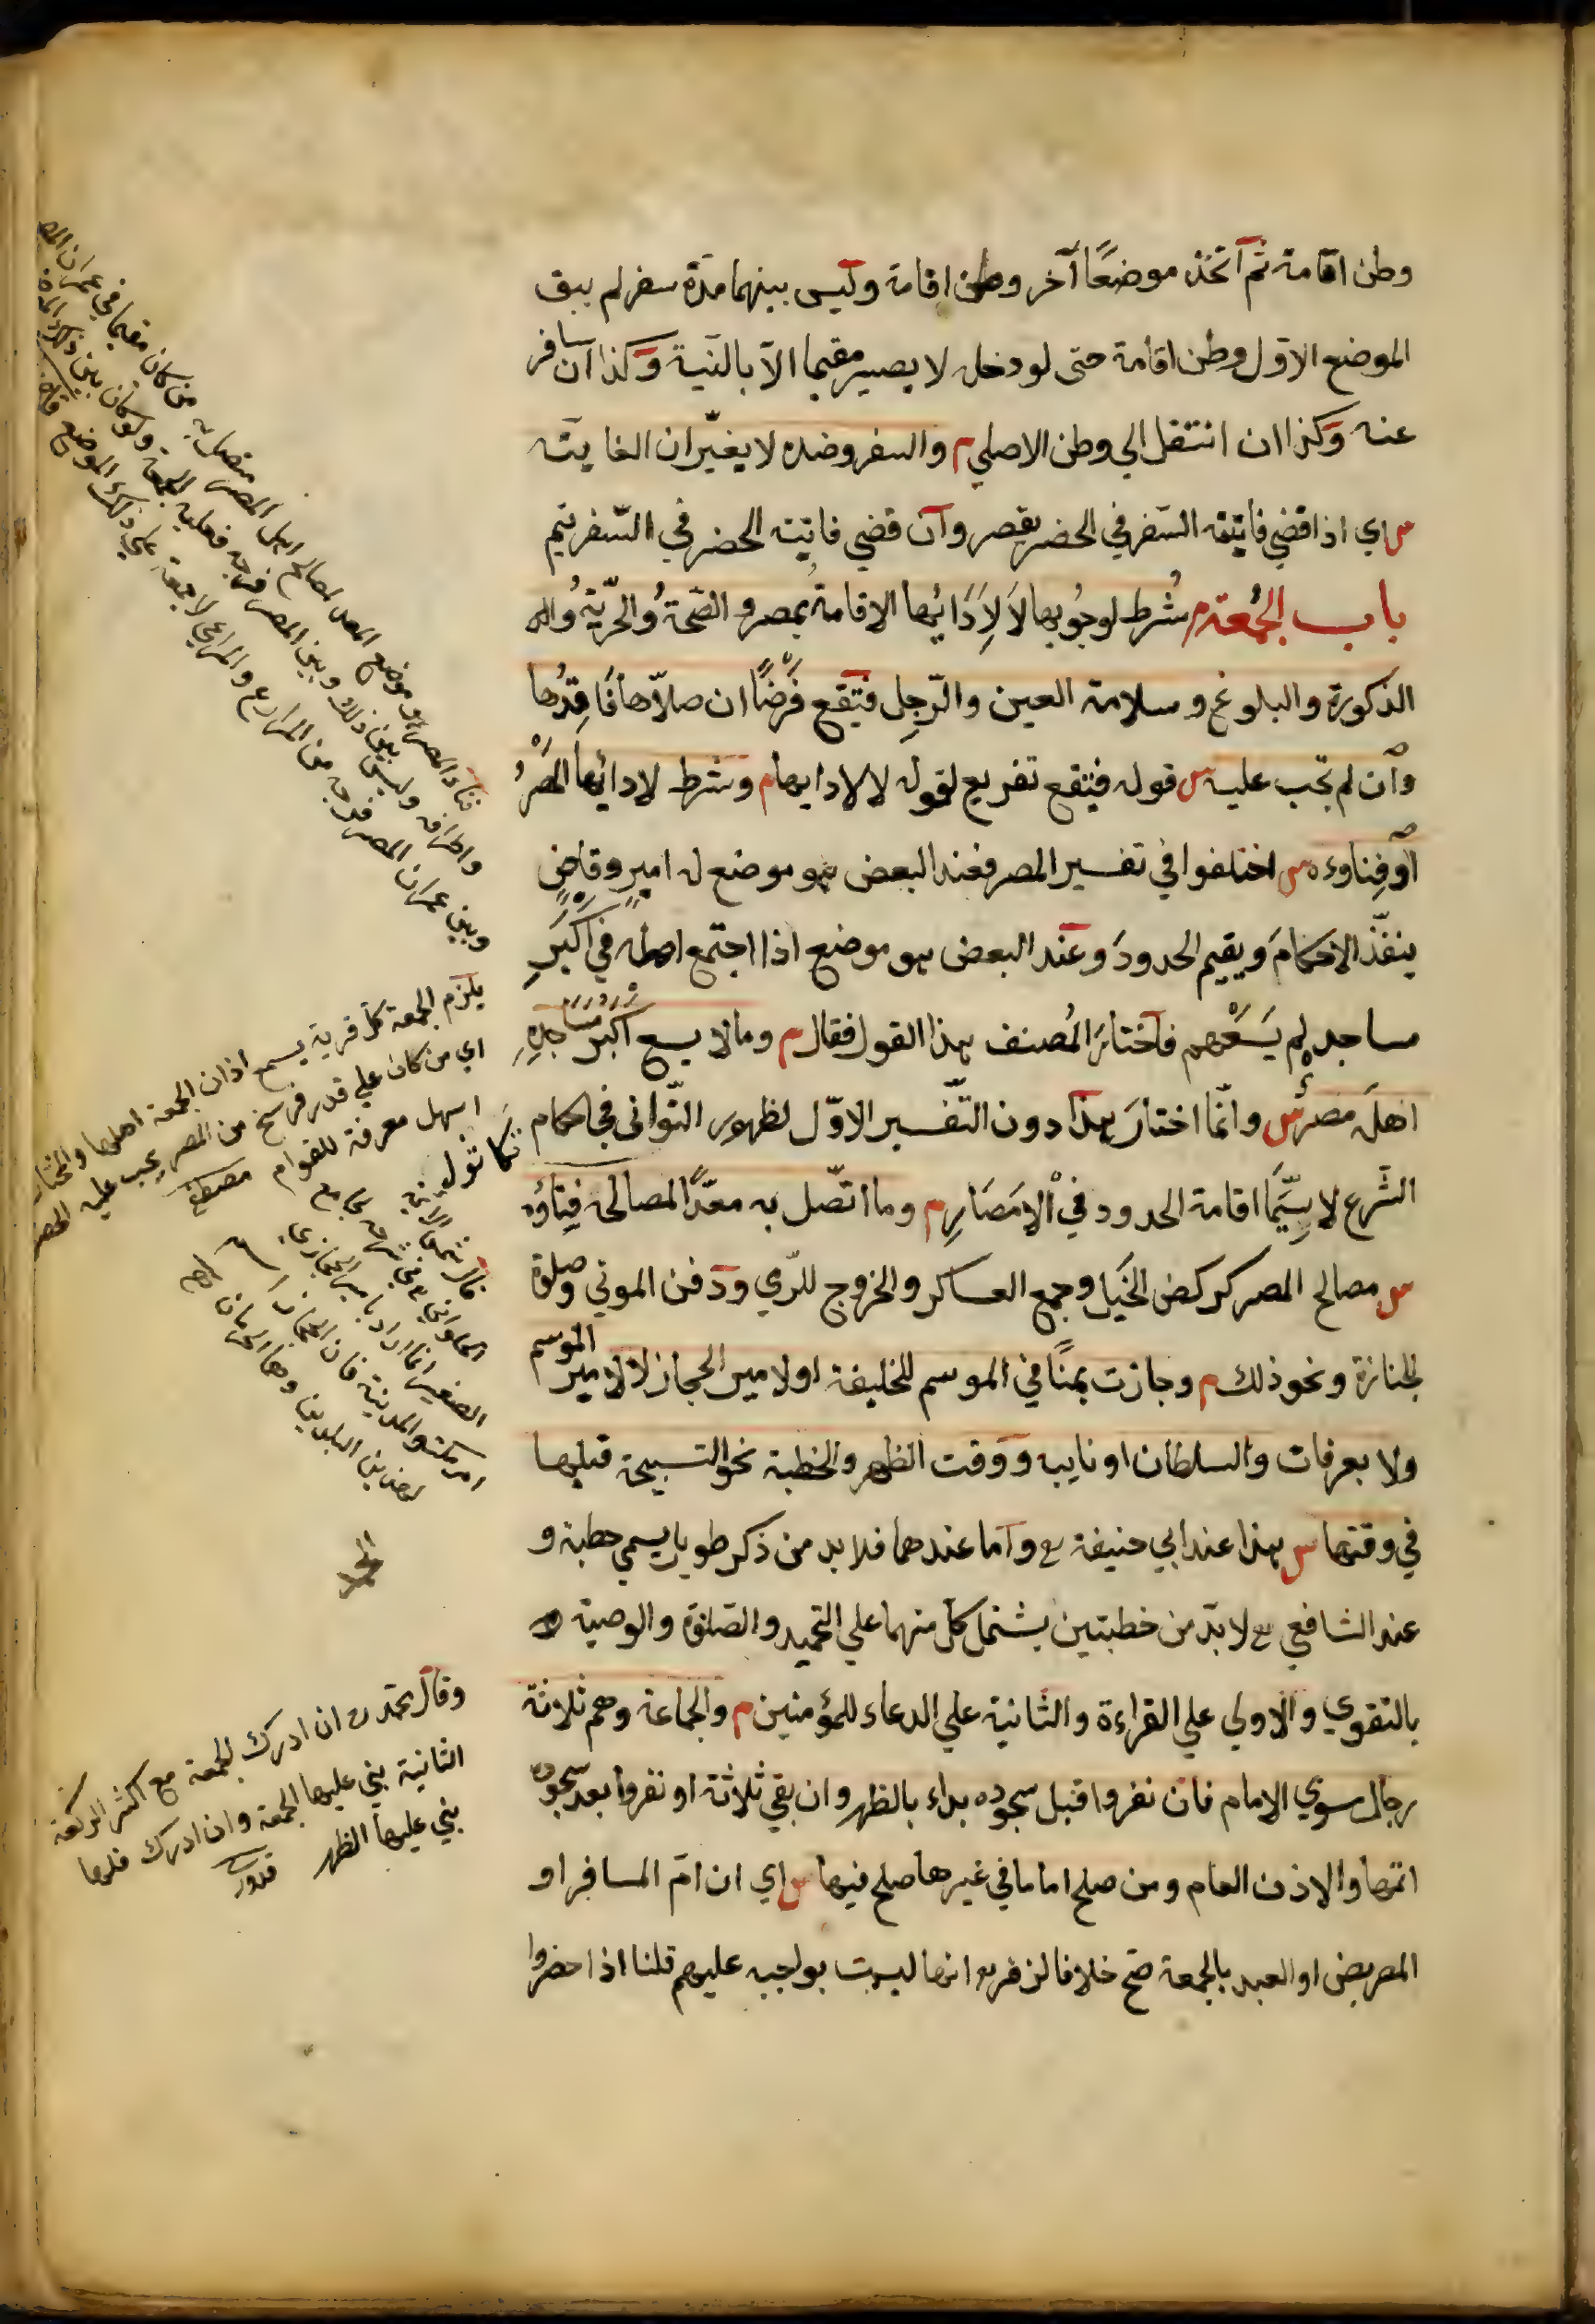 وطن اقامة ثم اتخذ موضعًا آخر وطن اقامة وليس بينهما مدة سفر لم يبق
الموضع الاوّل وطن اقامة حتى لو دخله لا يصير مقيما الّا بالنّية وكذا ان سافر
عنه وكذا ان انتقل الي وطن الاصلي م والسفر وضده لا يغيّران الفايتة
س اي اذا قضي فايتة السّفر في الحضر يقصر وان قضي فايتة الحضر في السّفر يتم
باب الجُمُعَة م شُرط لوجُوبها لَا لِاَدَائِها الاقامةُ بمصر والصّحّةُ والحرّيّةُ و
الذكورة والبلوغ وسلامة العين والرّجِل فتَقَع فَرْضًا ان صلّاها فَاقِدُها
وان لم تجب عليه س قوله فيقع تفريع لقوله لا لادايها م وشرط لادائها المِصْرُ
او فِناوءه س اختلفوا في تفسير المصر فعند البعض هو موضع له اميرٌ وقاضٍ
ينفّذ الاحكامَ ويقيم الحدودَ وعند البعض هو موضع اذا اجتمع اهله في اَكْبَرِ
مساجده لم يَسَعْهم فاختارَ المُصنف هذا القول فقال م وما لا يسع اَكْبَرُ مَسَاجِدِهِ
اهلَه مصرٌ س وانّما اختارَ هذا دون التّفسير الاوّل لظهور التّواني في احكام
الشّرع لا سِيَّمَا اقامة الحدود في الْاَمصَارِ م وما اتّصل به معدًّا لمصالحه فِناؤه
س مصالح المصر كركض الخَيل وجمع العساكر والخروج للرّمي ودفن الموتي وصلوة
الجنازة ونحو ذلك م وجازت بمنًا في الموسم للخليفة او لامير الحجاز لا لامير الموسم
ولا بعرفات والسلطان او نايبه ووقت الظهر والخطبة نحو التسبيحة قبلها
في وقتها س هذا عند ابي حنيفة رح واما عندهما فلا بد من ذكر طويل يسمي خطبة و
عند الشافعي رح لا بدّ من خطبتين يشتمل كل منهما علي التحميد والصّلوة والوصيّة
بالتقوي والاولي علي القراءة والثّانية علي الدعاء للمؤمنين م والجماعة وهم ثلاثة
رجال سوي الامام فان نفروا قبل سجوده بداء بالظهر وان بقي ثلاثة او نفروا بعد سجوده
اتمّها والاذن العام ومن صلح اماما في غيرها صلح فيها س اي ان امّ المسافر او
المريض او العبد بالجمعة صحّ خلافا لزفر رح انها ليست بواجبه عليهم قلنا اذا حضروا
فناء المصر هو موضع المعد لمصالح اهل المصر متصل به من كان مقيما في عمران المصر
واطرافه وليس بين ذلك وبين المصر فرجه فعليه الجمعة ولو كان بين ذلك الموضع
وبين عمران المصر فرجه من المزارع والمراعي لا جمعة علي ذلك الموضع
يلزم الجمعة كل قرية يسمع اذان الجمعة اهلها والمختار
اي من كان علي قدر فرسخ من المصر يجب عليه الحضور
اسهل معرفة للعوام
الصغير انما اراد بامير الحجازي
امر مكة والمدينة فان الحجاز
وقال محمد رح ان ادرك الجمعة مع اكثر الركعة
الثانية بني عليها الجمعة وان ادرك قلها
بني عليها الظهر قدوري